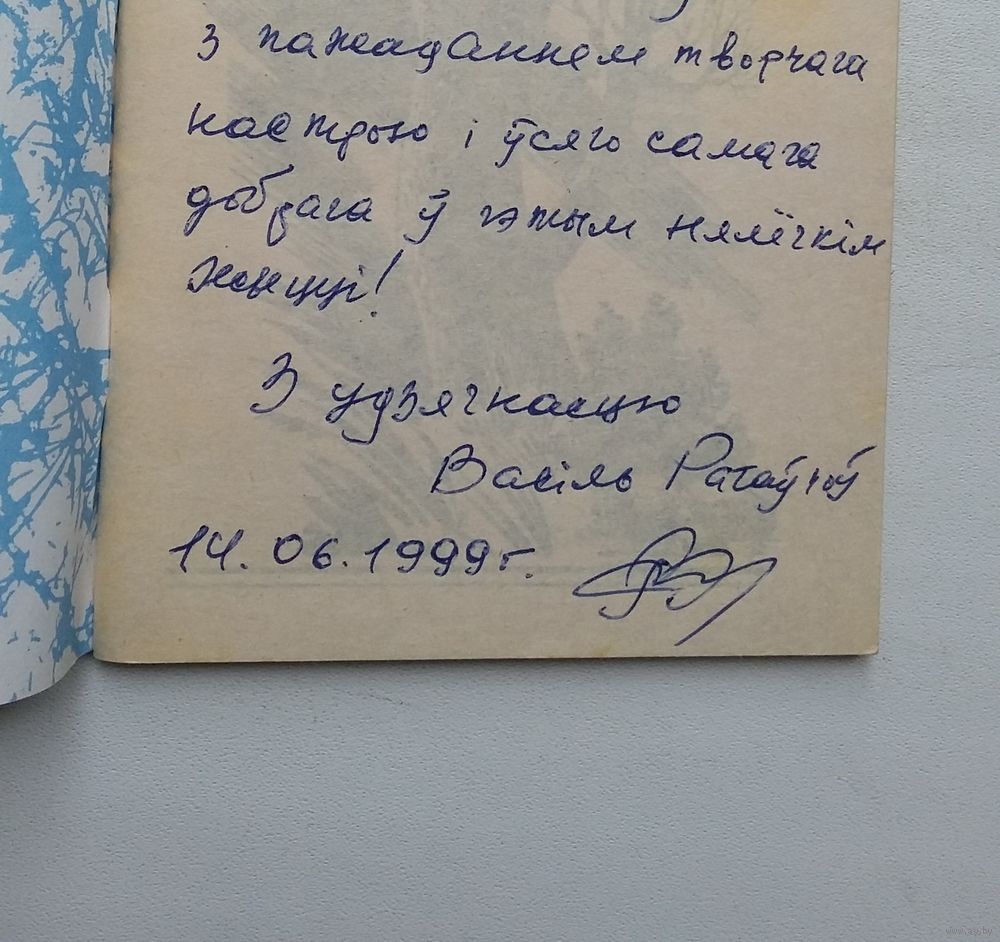 з пажаданнем творчага
настрою і ўсяго самага
добрага ў гэтым нялёгкім
жыцці!
З удзячнасцю
Васіль
14.06.1999г.